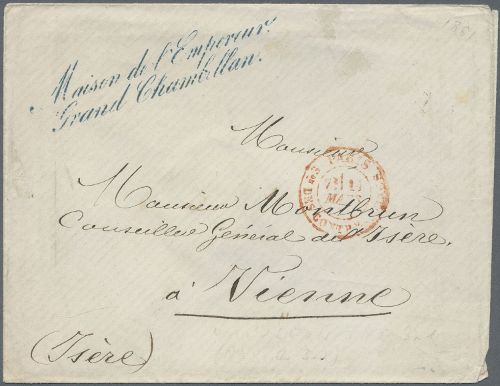 Maison de l'Empereur.
Grand Chambellan.
1861
Monsieur
Monsieur Montbrun
Conseiller Général de l'Isère.
à Vienne
(Isère)
PARIS